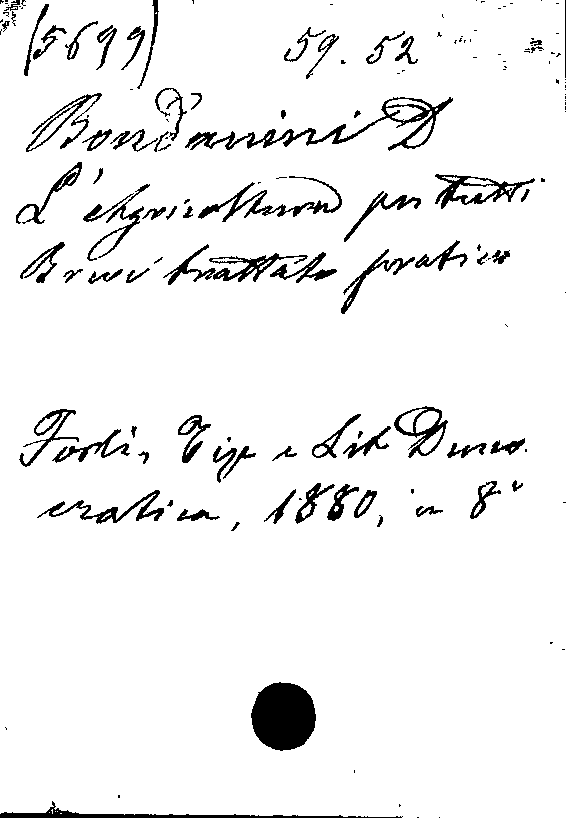 (5699) 59.52
Bondanini D
L'Agricoltura per tutti
Brevi trattato pratico
Forlì, Tip e Lit Demo
cratica, 1880, in 8°